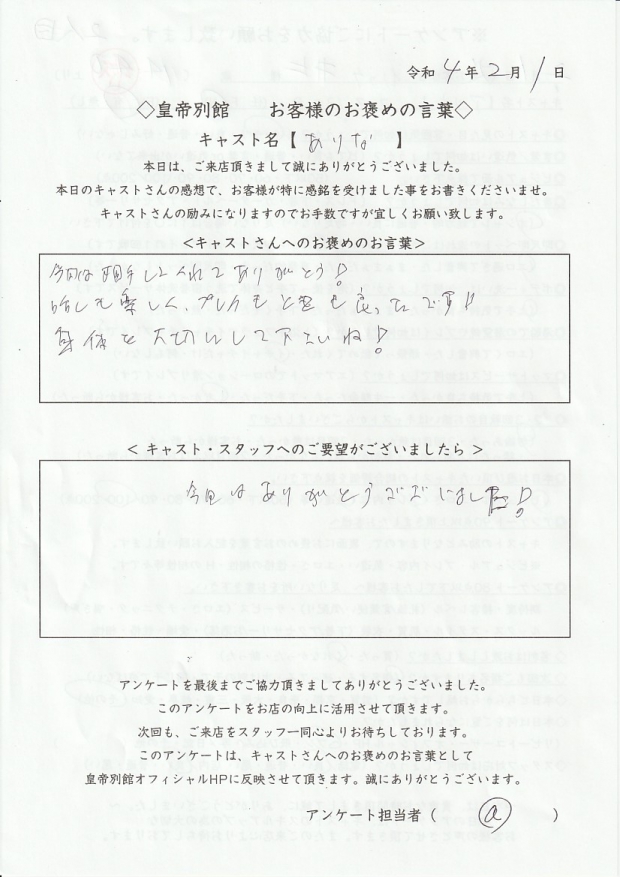 令和 4 年 2 月 1 日
◇皇帝別館 お客様のお褒めの言葉◇
キャスト名【 ありな 】
本日は、ご来店頂きまして誠にありがとうございました。
本日のキャストさんの感想で、お客様が特に感銘を受けました事をお書きくださいませ。
キャストさんの励みになりますのでお手数ですが宜しくお願い致します。
<キャストさんへのお褒めのお言葉>
今回は相手してくれてありがとう!
話しも楽しく、プレイもとても良かったです!!
身体を大切にして下さいね!
< キャスト・スタッフへのご要望がございましたら >
今回はありがとうございました!
アンケートを最後までご協力頂きましてありがとうございました。
このアンケートをお店の向上に活用させて頂きます。
次回も、ご来店をスタッフ一同心よりお待ちしております。
このアンケートは、キャストさんへのお褒めのお言葉として
皇帝別館オフィシャルHPに反映させて頂きます。誠にありがとうございます。
アンケート担当者 ( a )